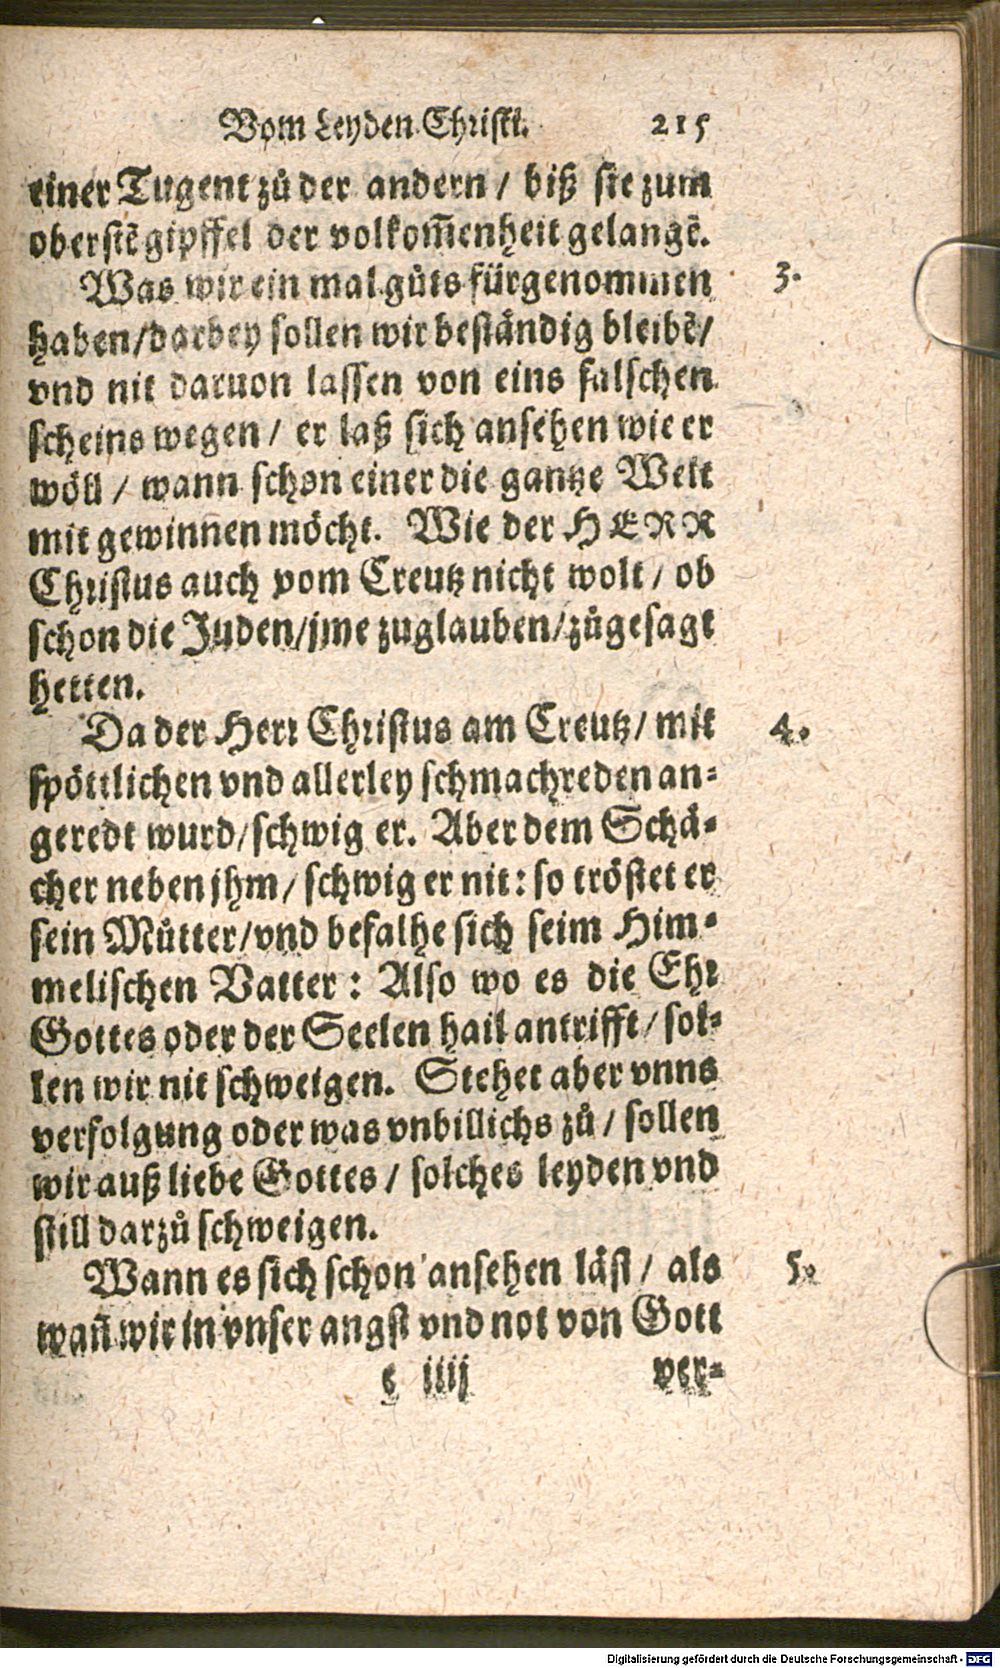 Vom Leyden Christi. 215
einer Tugent zů der andern / biß sie zum
oberstẽ gipffel der volkom̃enheit gelangẽ.
Was wir ein mal gůts fürgenommen 3.
haben/darbey sollen wir beständig bleibẽ/
vnd nit daruon lassen von eins falschen
scheins wegen / er laß sich ansehen wie er
wöll / wann schon einer die gantze Welt
mit gewinnen möcht. Wie der HERR
Christus auch vom Creutz nicht wolt / ob
schon die Juden/jme zuglauben/zůgesagt
hetten.
Da der Herr Christus am Creutz / mit 4.
spöttlichen vnd allerley schmachreden an-
geredt wurd/schwig er. Aber dem Schä-
cher neben jhm/ schwig er nit: so tröstet er
sein Můtter/vnd befalhe sich seim Him-
melischen Vatter : Also wo es die Ehr
Gottes oder der Seelen hail antrifft / sol-
len wir nit schweigen. Stehet aber vnns
verfolgung oder was vnbillichs zů / sollen
wir auß liebe Gottes / solches leyden vnd
still darzů schweigen.
Wann es sich schon ansehen läst / als 5.
wañ wir in vnser angst vnd not von Gott
e iiij ver-
Digitalisierung gefördert durch die Deutsche Forschungsgemeinschaft - DFG